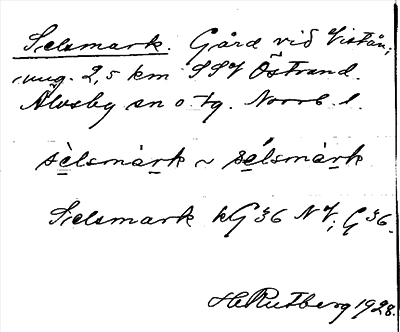 Selsmark. Gård vid Vistån,
ung. 2,5 km SSV Östrand.
Älvsby sn o. tg. Norrb. l.
sèlsmàrk ~ sélsmàrk
Selsmark kG 36 NV; G 36.
HRutberg 1928.